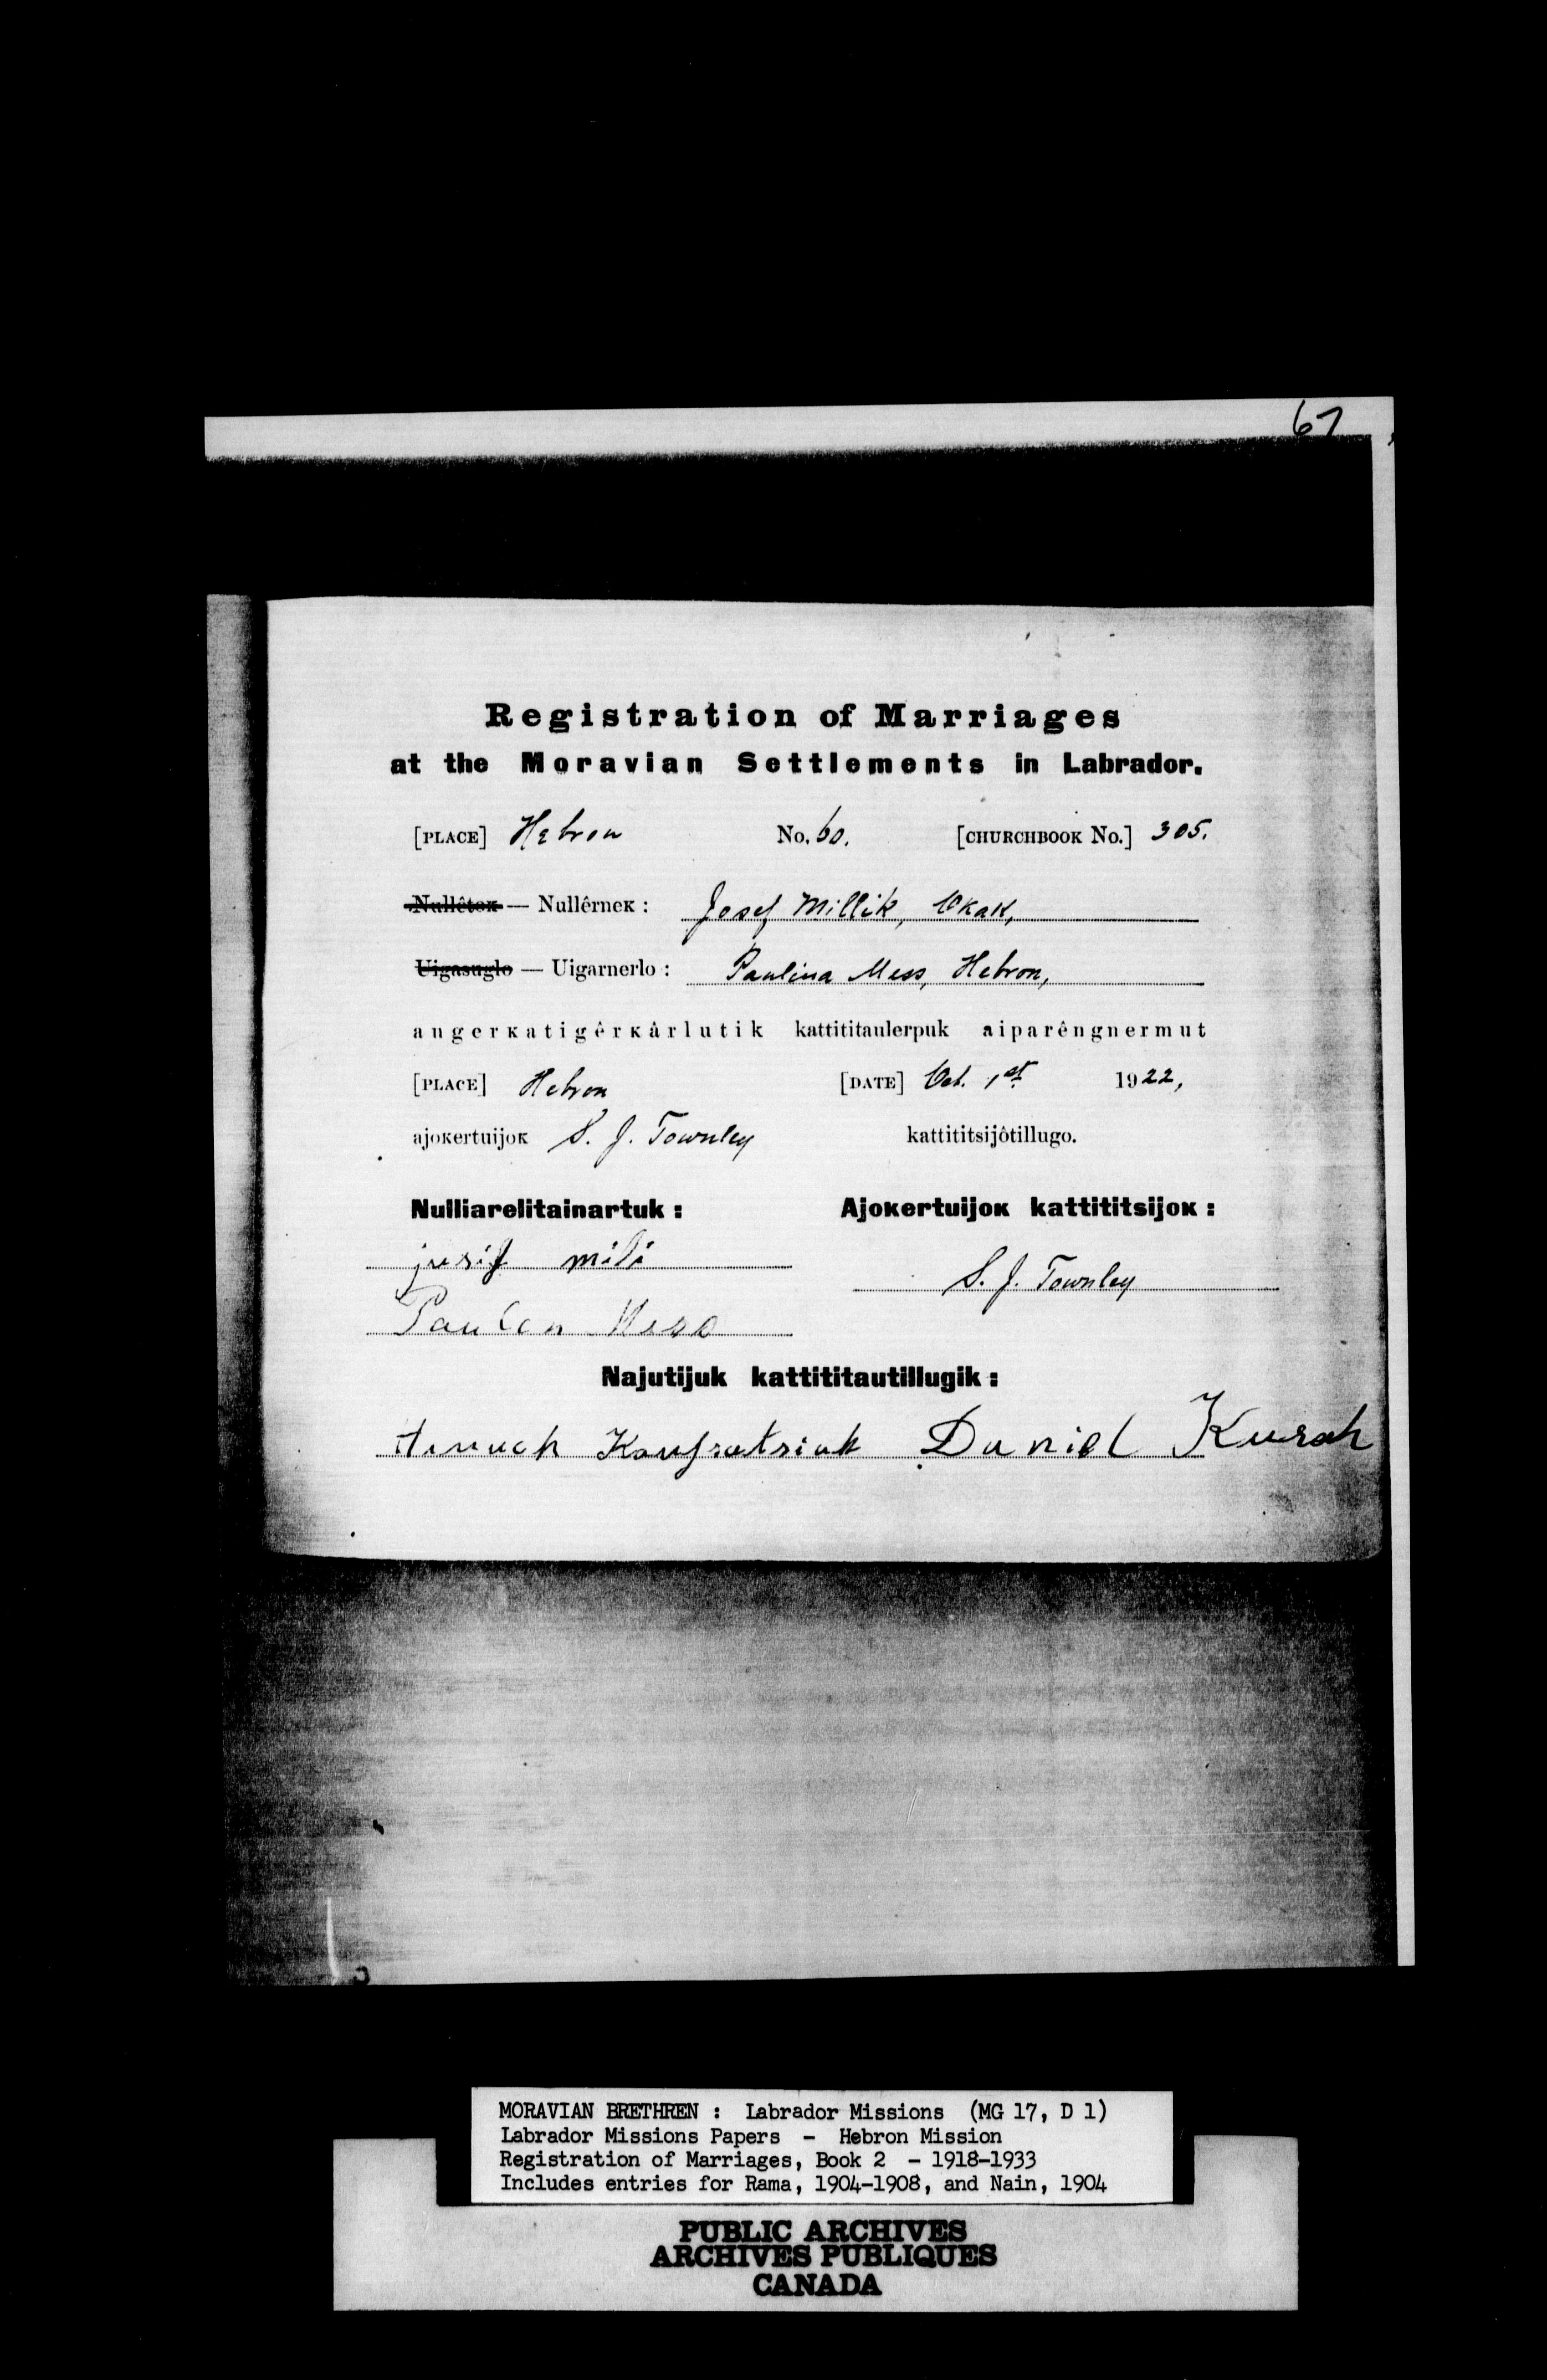 67
Registration of Marriages
at the Moravian Settlements in Labrador.
[PLACE] Hebron No. 60. [CHURCHBOOK No.] 305.
Nullêtoĸ — Nullêrneĸ : Josef Millik, Okak,
Uigasuglo — Uigarnerlo : Paulina Mess, Hebron,
angerĸatigêrĸârlutik kattititaulerpuk aiparêngnermut
[PLACE] Hebron [DATE] Oct. 1st 1922,
ajoĸertuijoĸ S. J. Townley kattititsijôtillugo.
Nulliarelitainartuk : Ajoĸertuijoĸ kattititsijoĸ :
jusif mili
S. J. Townley
Mess
Najutijuk kattititautillugik :
Daniel
MORAVIAN BRETHREN : Labrador Missions (MG 17, D 1)
Labrador Missions Papers - Hebron Mission
Registration of Marriages, Book 2 - 1918-1933
Includes entries for Rama, 1904-1908, and Nain, 1904
PUBLIC ARCHIVES
ARCHIVES PUBLIQUES
CANADA